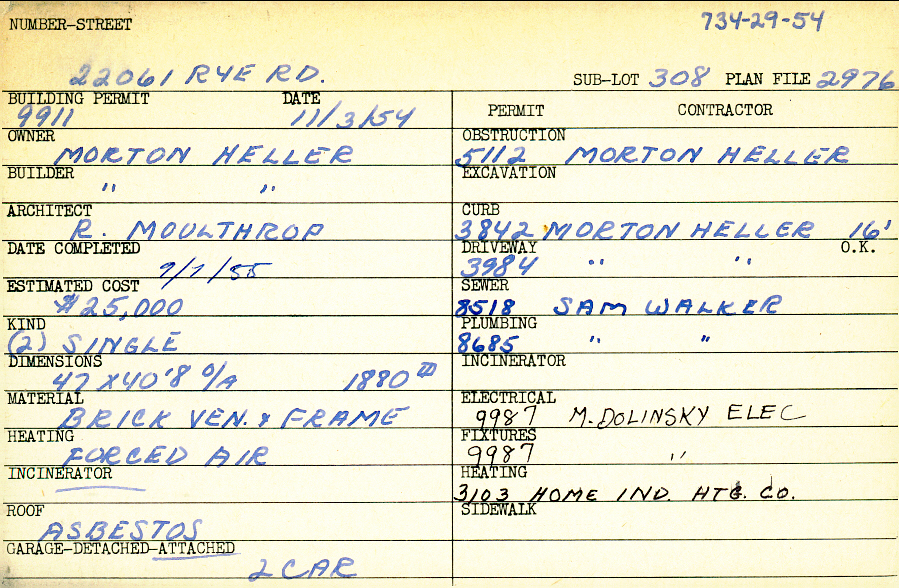 NUMBER-STREET 734-29-54
22061 RYE RD. SUB-LOT 308 PLAN FILE 2976
BUILDING PERMIT DATE
9911 11/3/54
OWNER
MORTON HELLER
BUILDER
" "
ARCHITECT
R. MOULTHROP
DATE COMPLETED
9/7/55
ESTIMATED COST
$25,000
KIND
(2) SINGLE
DIMENSIONS
47 X40'8 O/A 1880
MATERIAL
BRICK VEN. & FRAME
HEATING
FORCED AIR
INCINERATOR
ROOF
ASBESTOS
GARAGE-DETACHED-ATTACHED
2 CAR
PERMIT CONTRACTOR
OBSTRUCTION
5112 MORTON HELLER
EXCAVATION
CURB
3842 MORTON HELLER 16'
DRIVEWAY O.K.
3984 " "
SEWER
8518 SAM WALKER
PLUMBING
8685 " "
INCINERATOR
ELECTRICAL
9987 M. DOLINSKY ELEC
FIXTURES
9987 "
HEATING
3103 HOME IND. HTG. CO.
SIDEWALK